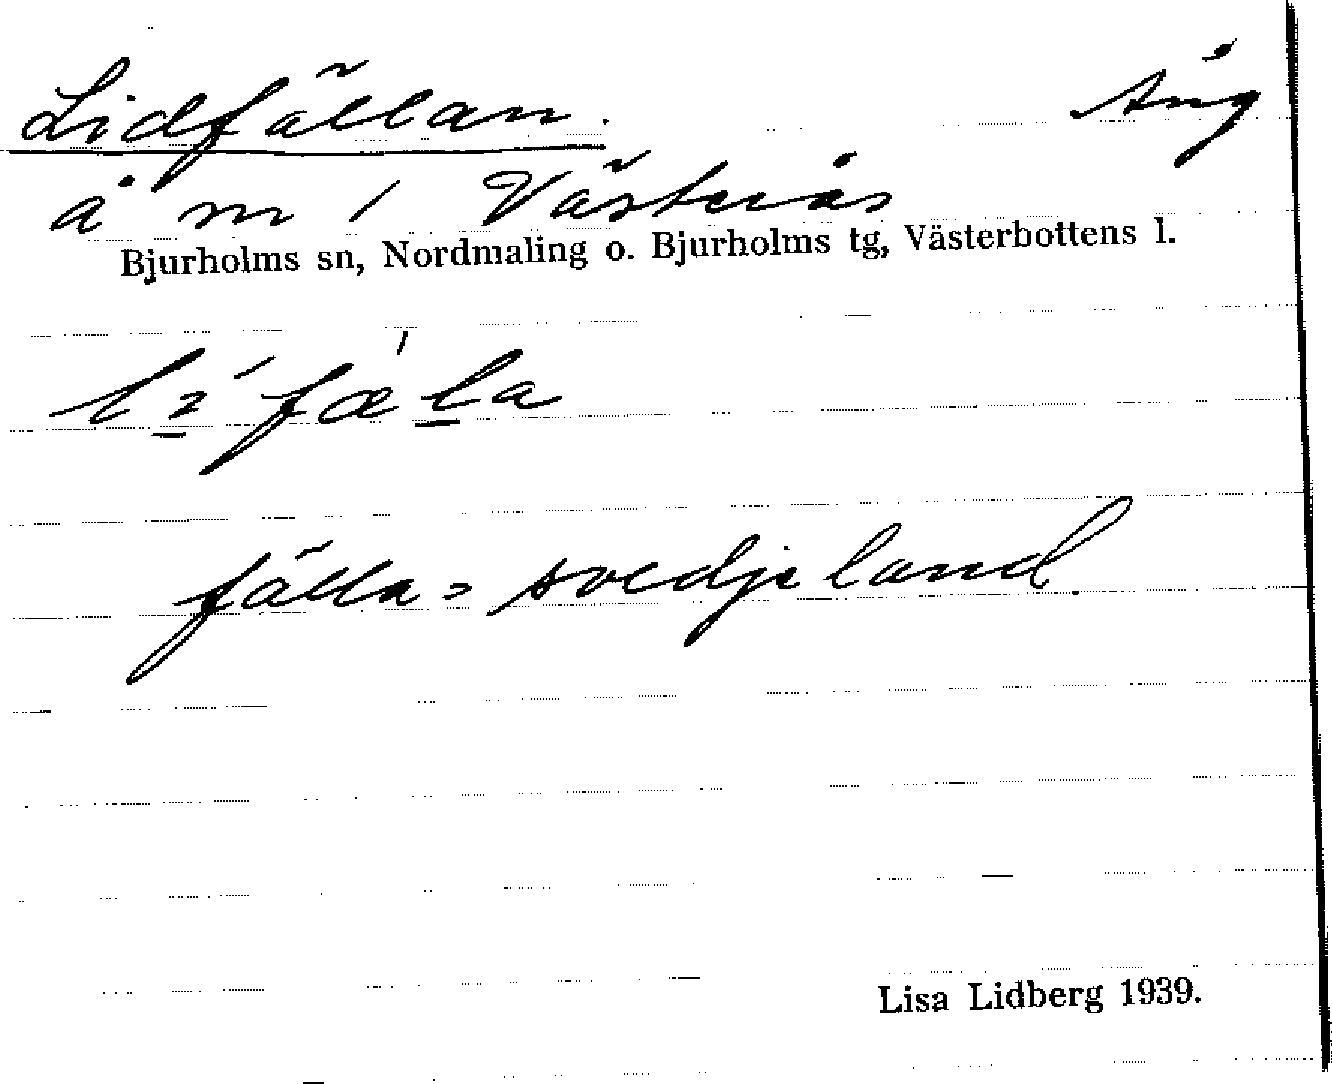 Lidfällan. Ång
å m 1 Västerås
Bjurholms sn, Nordmaling o. Bjurholms tg, Västerbottens l.
fälla = svedjeland
Lisa Lidberg 1939.